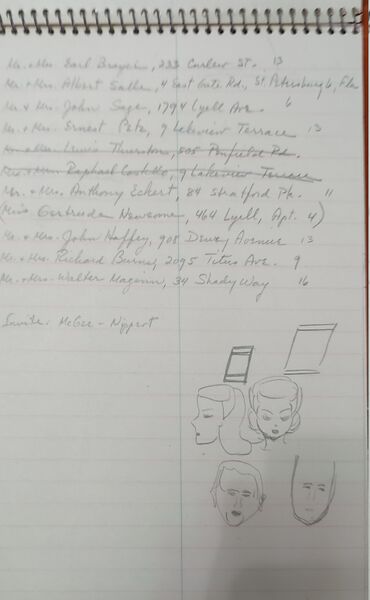 Mr. + Mrs. Earl Brayer, 233 Curlew St. 13
Mr. + Mrs. Albert Salle, 4 East Gate Rd., St. Petersburg 6, Fla
Mr + Mrs. John Sage, 1794 Lyell Ave. 6
Mr. + Mrs. Ernest Pete, 9 Lakeview Terrace 13
Mr. + Mrs. Lewis Thurston, 505 Penfield Rd.
Mr. + Mrs. Raphael Costello, 9 Lakeview Terrace
Mr. + Mrs. Anthony Eckert, 84 Stratford Pk. 11
(Miss Gertrude Newcome, 464 Lyell, Apt. 4)
Mr. + Mrs. John Haffey, 908 Dewey Avenue 13
Mr. + Mrs. Richard Burns, 2095 Titus Ave. 9
Mr. + Mrs. Walter Maginn, 34 Shady Way 16
Invite: McGee - Nippert